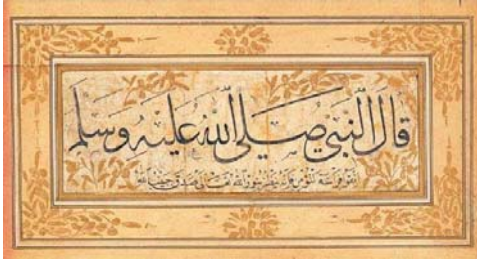 قَالَ النَّبِيُّ صَلَّى اللهُ عَلَيْهِ وَسَلَّمَ
اتقوا فراسة المؤمن فانه ينظر بنور الله تعالى صدق حبيب الله